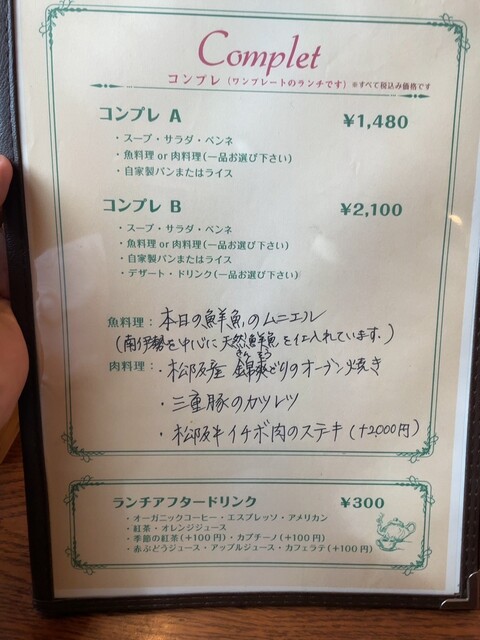 Complet
コンプレ(ワンプレートのランチです) ※すべて税込み価格です
コンプレ A ¥1,480
・スープ・サラダ・ペンネ
・魚料理 or 肉料理(一品お選び下さい)
・自家製パンまたはライス
コンプレ B ¥2,100
・スープ・サラダ・ペンネ
・魚料理 or 肉料理(一品お選び下さい)
・自家製パンまたはライス
・デザート・ドリンク(一品お選び下さい)
魚料理: 本日の鮮魚のムニエル
(南伊勢を中心に天然鮮魚を仕入れています。)
きん そう
肉料理: ・松阪産 錦爽どりのオーブン焼き
・三重豚のカツレツ
・松阪牛イチボ肉のステキ(+2,000円)
ランチアフタードリンク ¥300
・オーガニックコーヒー・エスプレッソ・アメリカン
・紅茶・オレンジジュース
・季節の紅茶(+100円)・カプチーノ(+100円)
・赤ぶどうジュース・アップルジュース・カフェラテ(+100円)